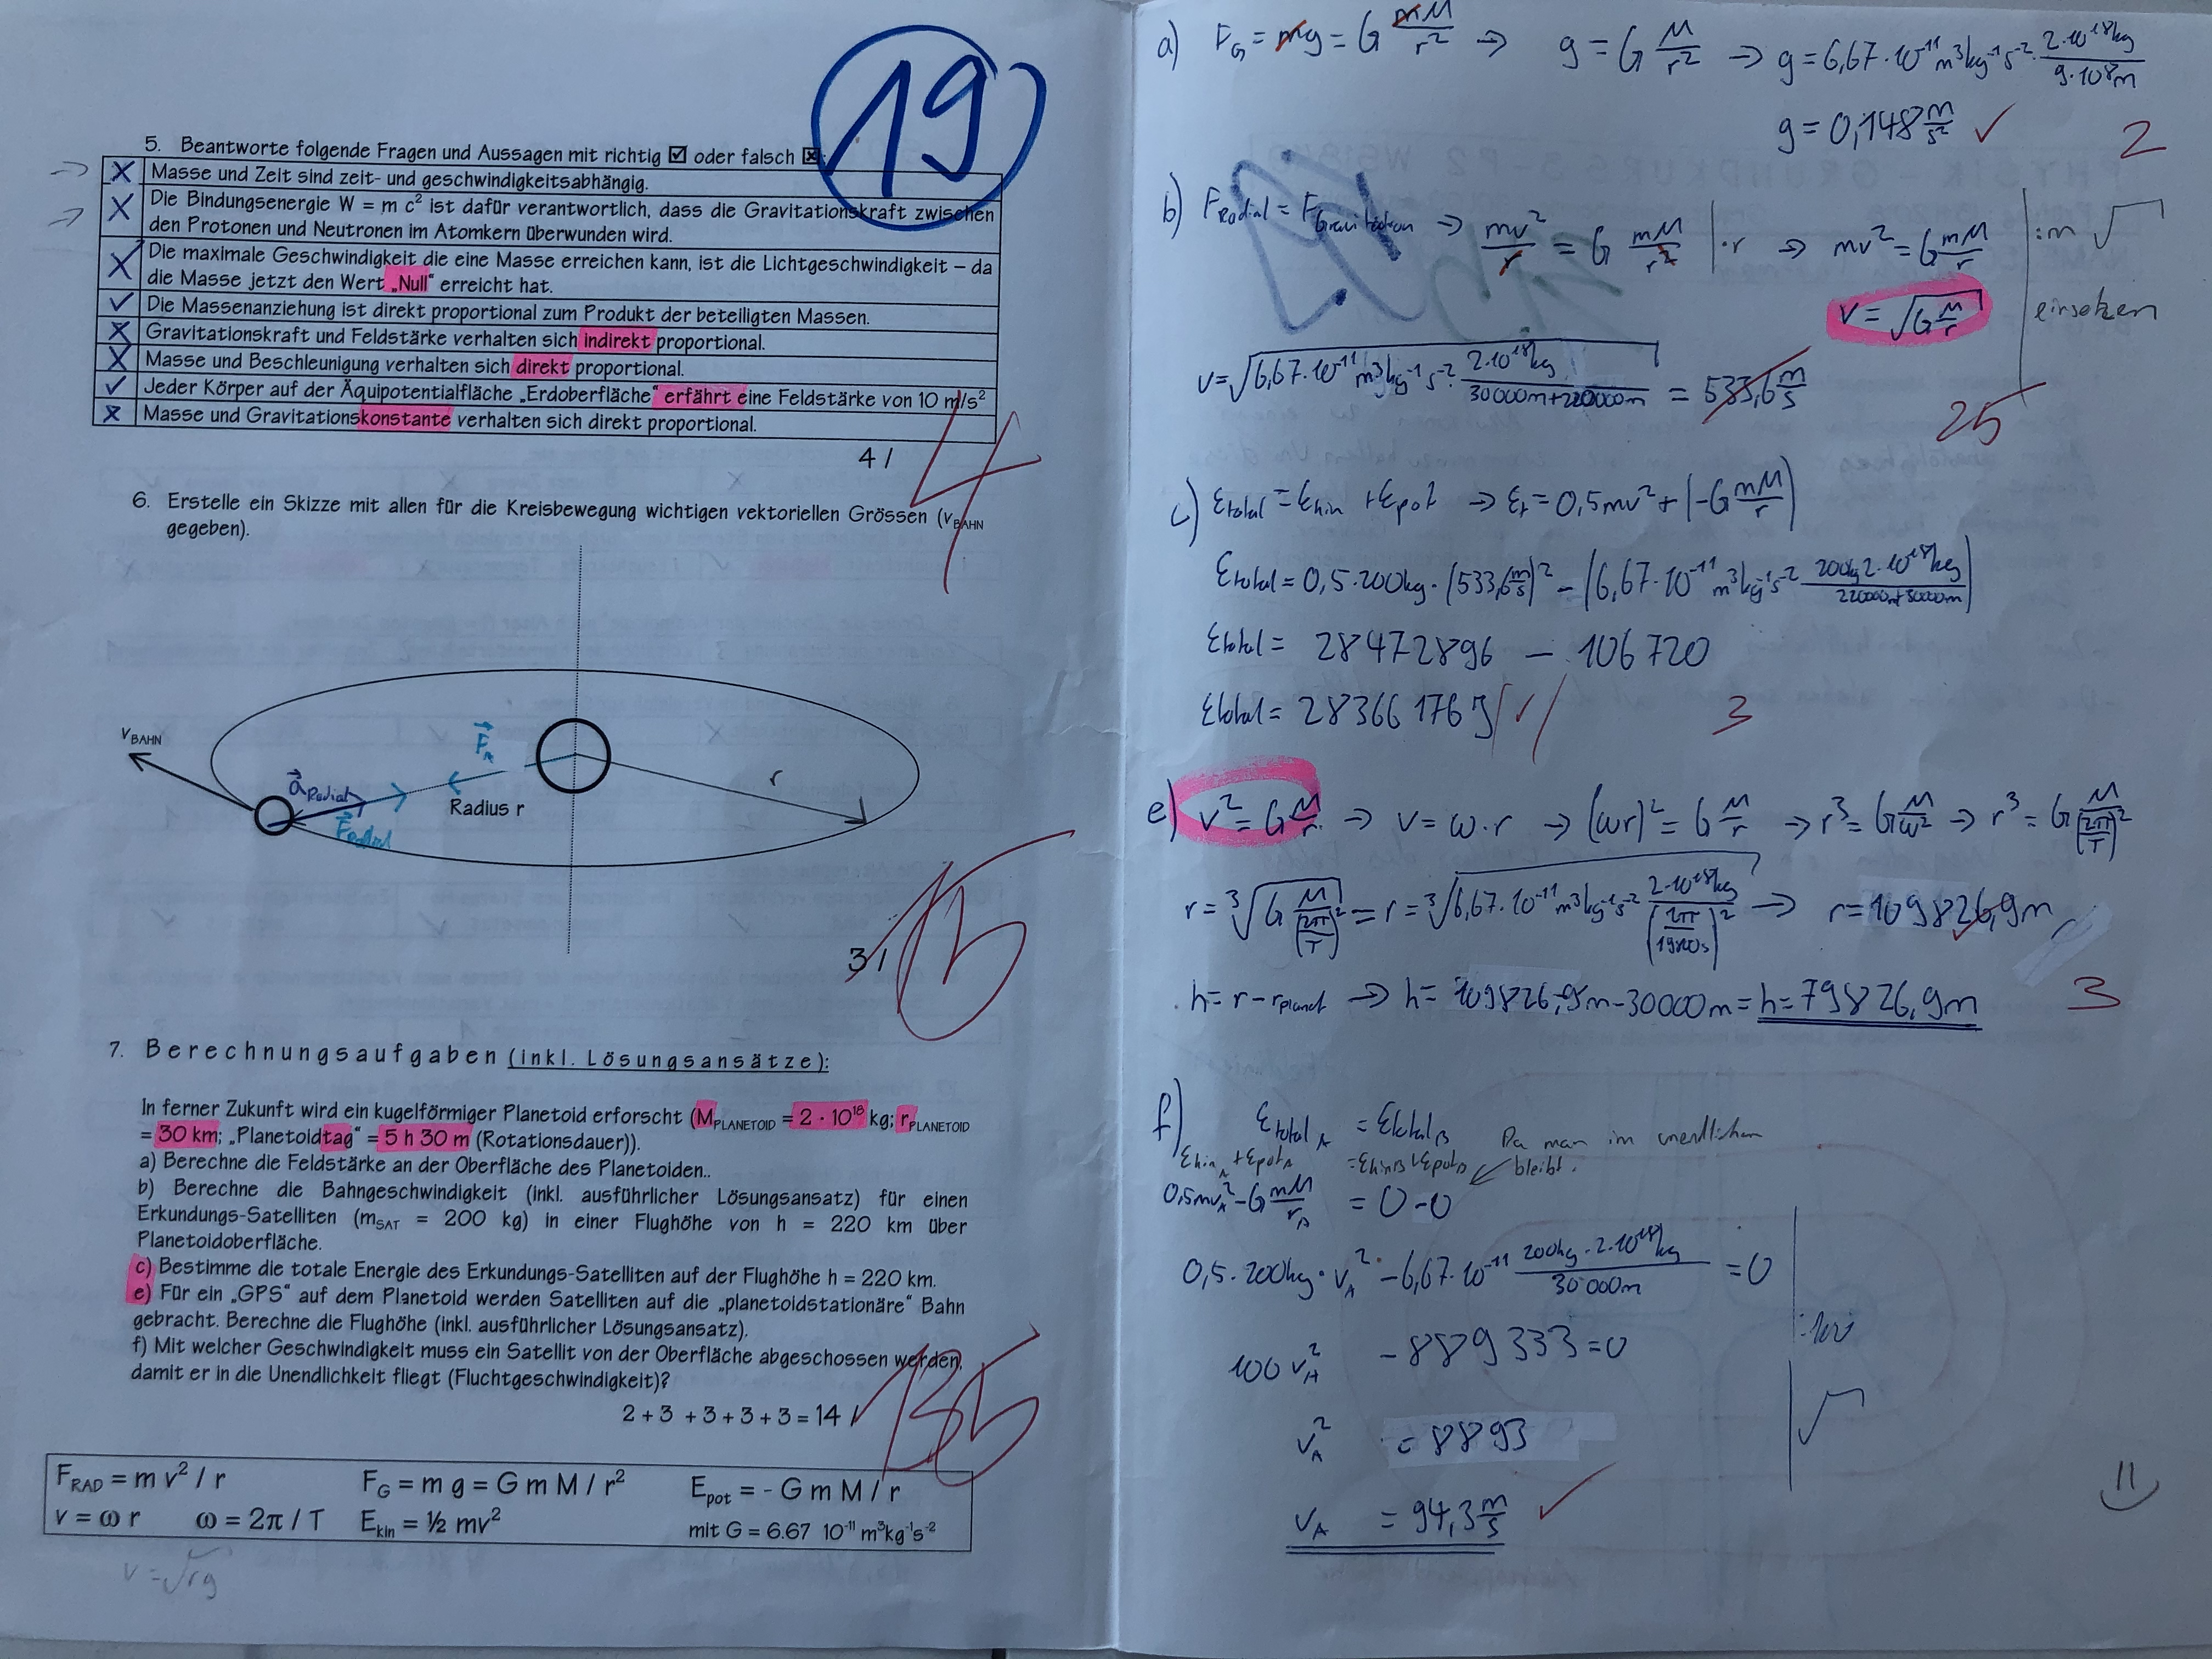 19
5. Beantworte folgende Fragen und Aussagen mit richtig ☑ oder falsch ☒:
X Masse und Zeit sind zeit- und geschwindigkeitsabhängig.
X Die Bindungsenergie W = m c² ist dafür verantwortlich, dass die Gravitationskraft zwischen
den Protonen und Neutronen im Atomkern überwunden wird.
X Die maximale Geschwindigkeit die eine Masse erreichen kann, ist die Lichtgeschwindigkeit – da
die Masse jetzt den Wert „Null“ erreicht hat.
✓ Die Massenanziehung ist direkt proportional zum Produkt der beteiligten Massen.
X Gravitationskraft und Feldstärke verhalten sich indirekt proportional.
X Masse und Beschleunigung verhalten sich direkt proportional.
✓ Jeder Körper auf der Äquipotentialfläche „Erdoberfläche“ erfährt eine Feldstärke von 10 m/s²
X Masse und Gravitationskonstante verhalten sich direkt proportional.
4 / 4
6. Erstelle ein Skizze mit allen für die Kreisbewegung wichtigen vektoriellen Grössen (v_BAHN
gegeben).
v_BAHN
a⃗_Radial
F⃗_Radial
Radius r
r
3 /
7. Berechnungsaufgaben (inkl. Lösungsansätze):
In ferner Zukunft wird ein kugelförmiger Planetoid erforscht (M_PLANETOID = 2 · 10¹⁸ kg; r_PLANETOID
= 30 km; „Planetoidtag“ = 5 h 30 m (Rotationsdauer)).
a) Berechne die Feldstärke an der Oberfläche des Planetoiden..
b) Berechne die Bahngeschwindigkeit (inkl. ausführlicher Lösungsansatz) für einen
Erkundungs-Satelliten (m_SAT = 200 kg) in einer Flughöhe von h = 220 km über
Planetoidoberfläche.
c) Bestimme die totale Energie des Erkundungs-Satelliten auf der Flughöhe h = 220 km.
e) Für ein „GPS“ auf dem Planetoid werden Satelliten auf die „planetoidstationäre“ Bahn
gebracht. Berechne die Flughöhe (inkl. ausführlicher Lösungsansatz).
f) Mit welcher Geschwindigkeit muss ein Satellit von der Oberfläche abgeschossen werden,
damit er in die Unendlichkeit fliegt (Fluchtgeschwindigkeit)?
2 + 3 + 3 + 3 + 3 = 14 / 135
F_RAD = m v² / r F_G = m g = G m M / r² E_pot = - G m M / r
v = ω r ω = 2π / T E_kin = ½ mv² mit G = 6.67 10⁻¹¹ m³kg⁻¹s⁻²
v = √rg
a) F_G = mg = G mM/r² → g = G M/r² → g = 6,67·10⁻¹¹ m³kg⁻¹s⁻² · 2·10¹⁸kg/9·10⁸m
g = 0,148 m/s² ✓ 2
b) F_Radial = F_Gravitation → mv²/r = G mM/r² | ·r → mv² = G mM/r | :m √
v = √(G M/r) einsetzen
v = √(6,67·10⁻¹¹ m³kg⁻¹s⁻² · 2·10¹⁸kg/(30000m+220000m)) = 533,6 m/s
25
c) Etotal = Ekin + Epot → Et = 0,5mv² + (-G mM/r)
Etotal = 0,5·200kg·(533,6 m/s)² − (6,67·10⁻¹¹ m³kg⁻¹s⁻² 200kg 2·10¹⁸kg/(220000m+30000m))
Etotal = 28472896 − 106720
Etotal = 28366176 J ✓ 3
e) v² = G M/r → v = ω·r → (ωr)² = G M/r → r³ = G M/ω² → r³ = G M/(2π/T)²
r = ³√(G M/(2π/T)²) = r = ³√(6,67·10⁻¹¹ m³kg⁻¹s⁻² 2·10¹⁸kg/(2π/19800s)²) → r = 109826,9m
h = r − r_planet → h = 109826,9m − 30000m = h = 79826,9m 3
f) Etotal_A = Etotal_B Da man im unendlichen
Ekin_A + Epot_A = Ekin_B + Epot_B bleibt.
0,5mv_A² − G mM/r_A = 0 − 0
0,5·200kg·v_A² − 6,67·10⁻¹¹ 200kg·2·10¹⁸kg/30000m = 0
100 v_A² − 889333 = 0 | :100
v_A² = 8893 | √
v_A = 94,3 m/s ✓